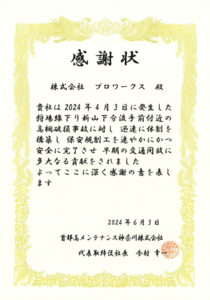 感謝状
株式会社 プロワークス 殿
貴社は2024年4月3日に発生した
狩場線下り新山下合流手前付近の
高欄破損事故に対し 迅速に体制を
構築し 保安規制工を速やかにかつ
安全に完了させ 早期の交通開放に
多大なる貢献をされました
よってここに深く感謝の意を表し
ます
2024年6月3日
首都高メンテナンス神奈川株式会社
代表取締役社長 今村 幸一